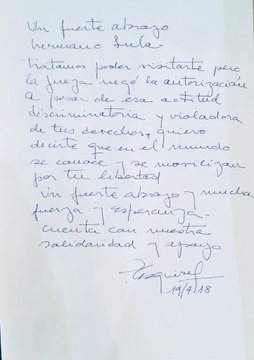 Un fuerte abrazo
hermano Lula-
tratamos poder visitarte pero
la jueza negó la autorización
A pesar de esa actitud
discriminatoria y violadora
de tus derechos, quiero
decirte que en el mundo
se conoce y se movilizan
por tu libertad
Un fuerte abrazo y mucha
fuerza y esperanza-
cuenta con nuestra
solidaridad y apoyo
19/4/18